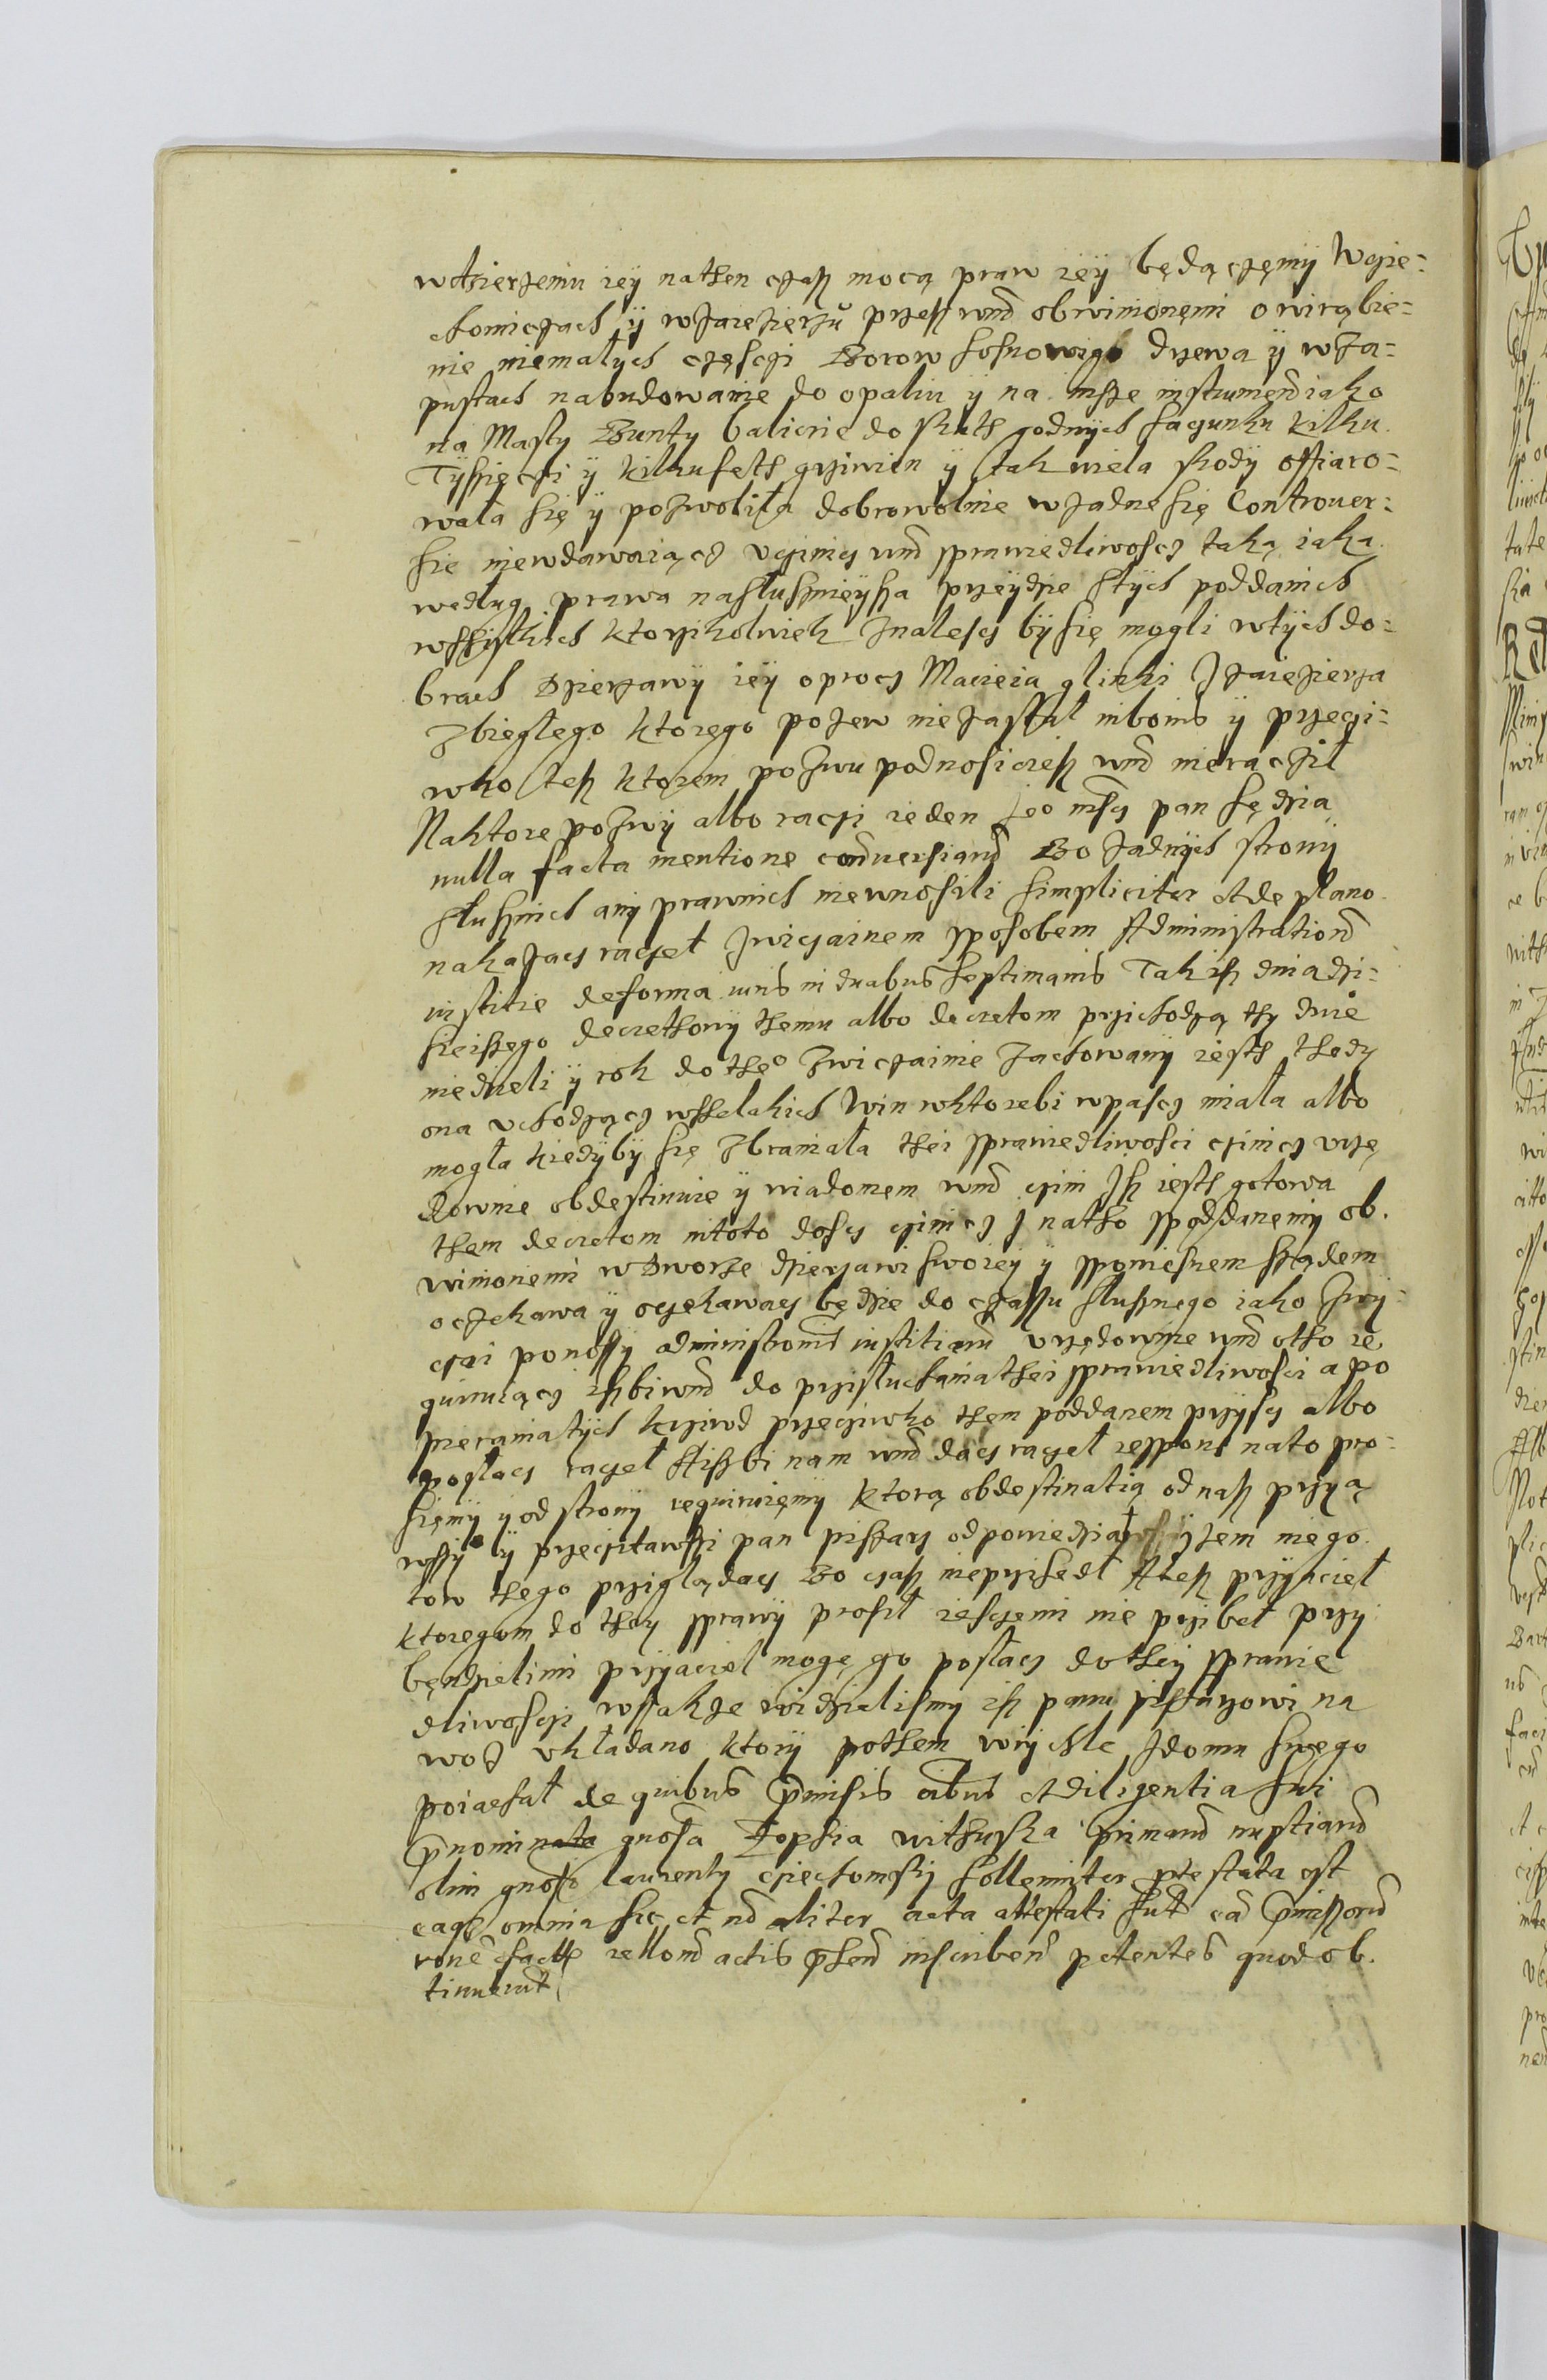 wdzierzeniu iey nathen czasz mocą praw iey będączęmy Wczie-
chomiczach y wJaiezierzu przesz wmc obwinionęmi o wirąbie-
nie niemałych częsczi Borow sosnowigo drzewa y wJa-
pustach nabudowanie do opaliu y na insze instrumenta iako
na Masty Bunty balicrie do skuth godnych sacunku kilku
Tysięczi y kilkuseth grziwien y tak wiela skody offiaro-
wała się y pozwoliła dobrowolnie wżadne się Controuer-
sie niewdawaiącz vczinicz wmc sprawiedliwoscz taką iaka
według prawa nasłusznieysza przeydzie stych poddanich
wssystkich ktorzikolwiek znalescz by się mogli wtych do-
brach Dzierzawy iey oprocz Macieia glinki z Jaiezierza
zbiegłego ktorego pozew nie zastał inbonis y przeczi-
wko tesz ktorem pozwu podnosiciesz wmc nieracził
Naktore pozwy albo raczi ieden Jeo mscz pan sędzia
nulla facta mentione conuersiand Bo żadnych strony
słusznich any prawnich niewnosili simpliciter et de plano
nakazacz raczeł zwiczainem sposobem Administrationd
iustitie deforma iuris in duabus septimanis Tak isz dnia dzi-
sieiszego decrethowy themu albo decretom przichodzą thy dwie
niedzieli y rok do theo zwiczainie zachowany iesth thedy
ona vchodzącz wsselakich Win wktorebi wpascz miała albo
mogła kiedyby się zbraniała thei sprawiedliwosci czinicz vrzę
downie obdestinuie y wiadomem wmc czini Jsz iesth gotowa
them decretom intoto doscz czinicz J natho spoddanemy ob.
winionemi wDworze dzierzawi swoiey y spowiesnem sządem
oczekawa y oczekawacz będzie do czassu słusznego iako zwy-
czai ponossy administrowac iustitiam vrzędownie wmc otho re
quiruiącz iszbiwmc do prziskuchania thei sprawiedliwosci a po
pierania tych krziwd przecziwko them poddanem przyscz albo
posłacz raczeł Aiszbi nam wmc dacz raczeł respons nato pro-
siemy y od strony requiruięmy ktorą obdestinatią odnasz przyą
wssy y przeczitawszi pan piszarz odpowiedział yzem niego
tow thego przigłądacz Bo czasz nieprzisedł Atesz przyiaciel
ktoregom do they sprawy prosił iesczemi nie przibeł przy
będzielimi przyaciel mogę go posłacz do they sprawie
dliwosczi wszakze widzielismy isz panu piszarzowi na
woz vkładano ktory pothem wrychle zdomu swęgo
poiachał de quibus pmisis oibus et diligentia sui
pnominata gnosa Zophia withuska primand nuptiand
olim gnosi laurenty cziechomsky sollemniter ptestata est
eaqz omnia sic et nd aliter acta attestati sut ea pmissord
rone facte rellond actis phend inscriben petentes quod ob.
tinuerut